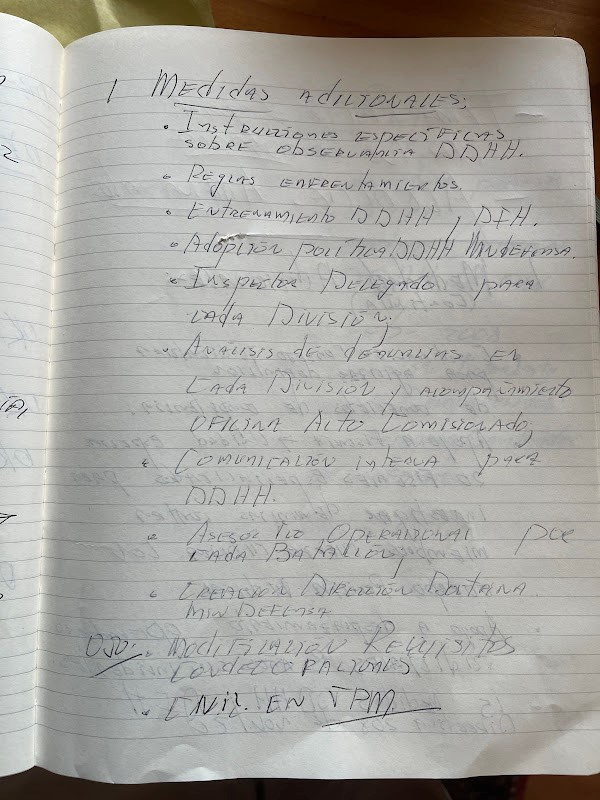 1 MEDIDAS ADICIONALES;
• INSTRUCCIONES ESPECÍFICAS
SOBRE OBSERVANCIA DDHH.
• REGLAS ENFRENTAMIENTOS.
• ENTRENAMIENTO DDHH y DIH.
• Adopción política DDHH Mindefensa.
• INSPECTOR DELEGADO para
cada DIVISIÓN;
• ANÁLISIS de denuncias EN
Cada DIVISIÓN y acompañamiento
OFICINA ALTO COMISIONADO;
• COMUNICACIÓN interna para
DDHH.
• ASESOR OPERACIONAL por
cada BATALLÓN,
• CREACIÓN DIRECCIÓN DOCTRINA
MIN DEFENSA
OJO: • MODIFICACIÓN REQUISITOS
CONDECORACIONES
• EN JPM.